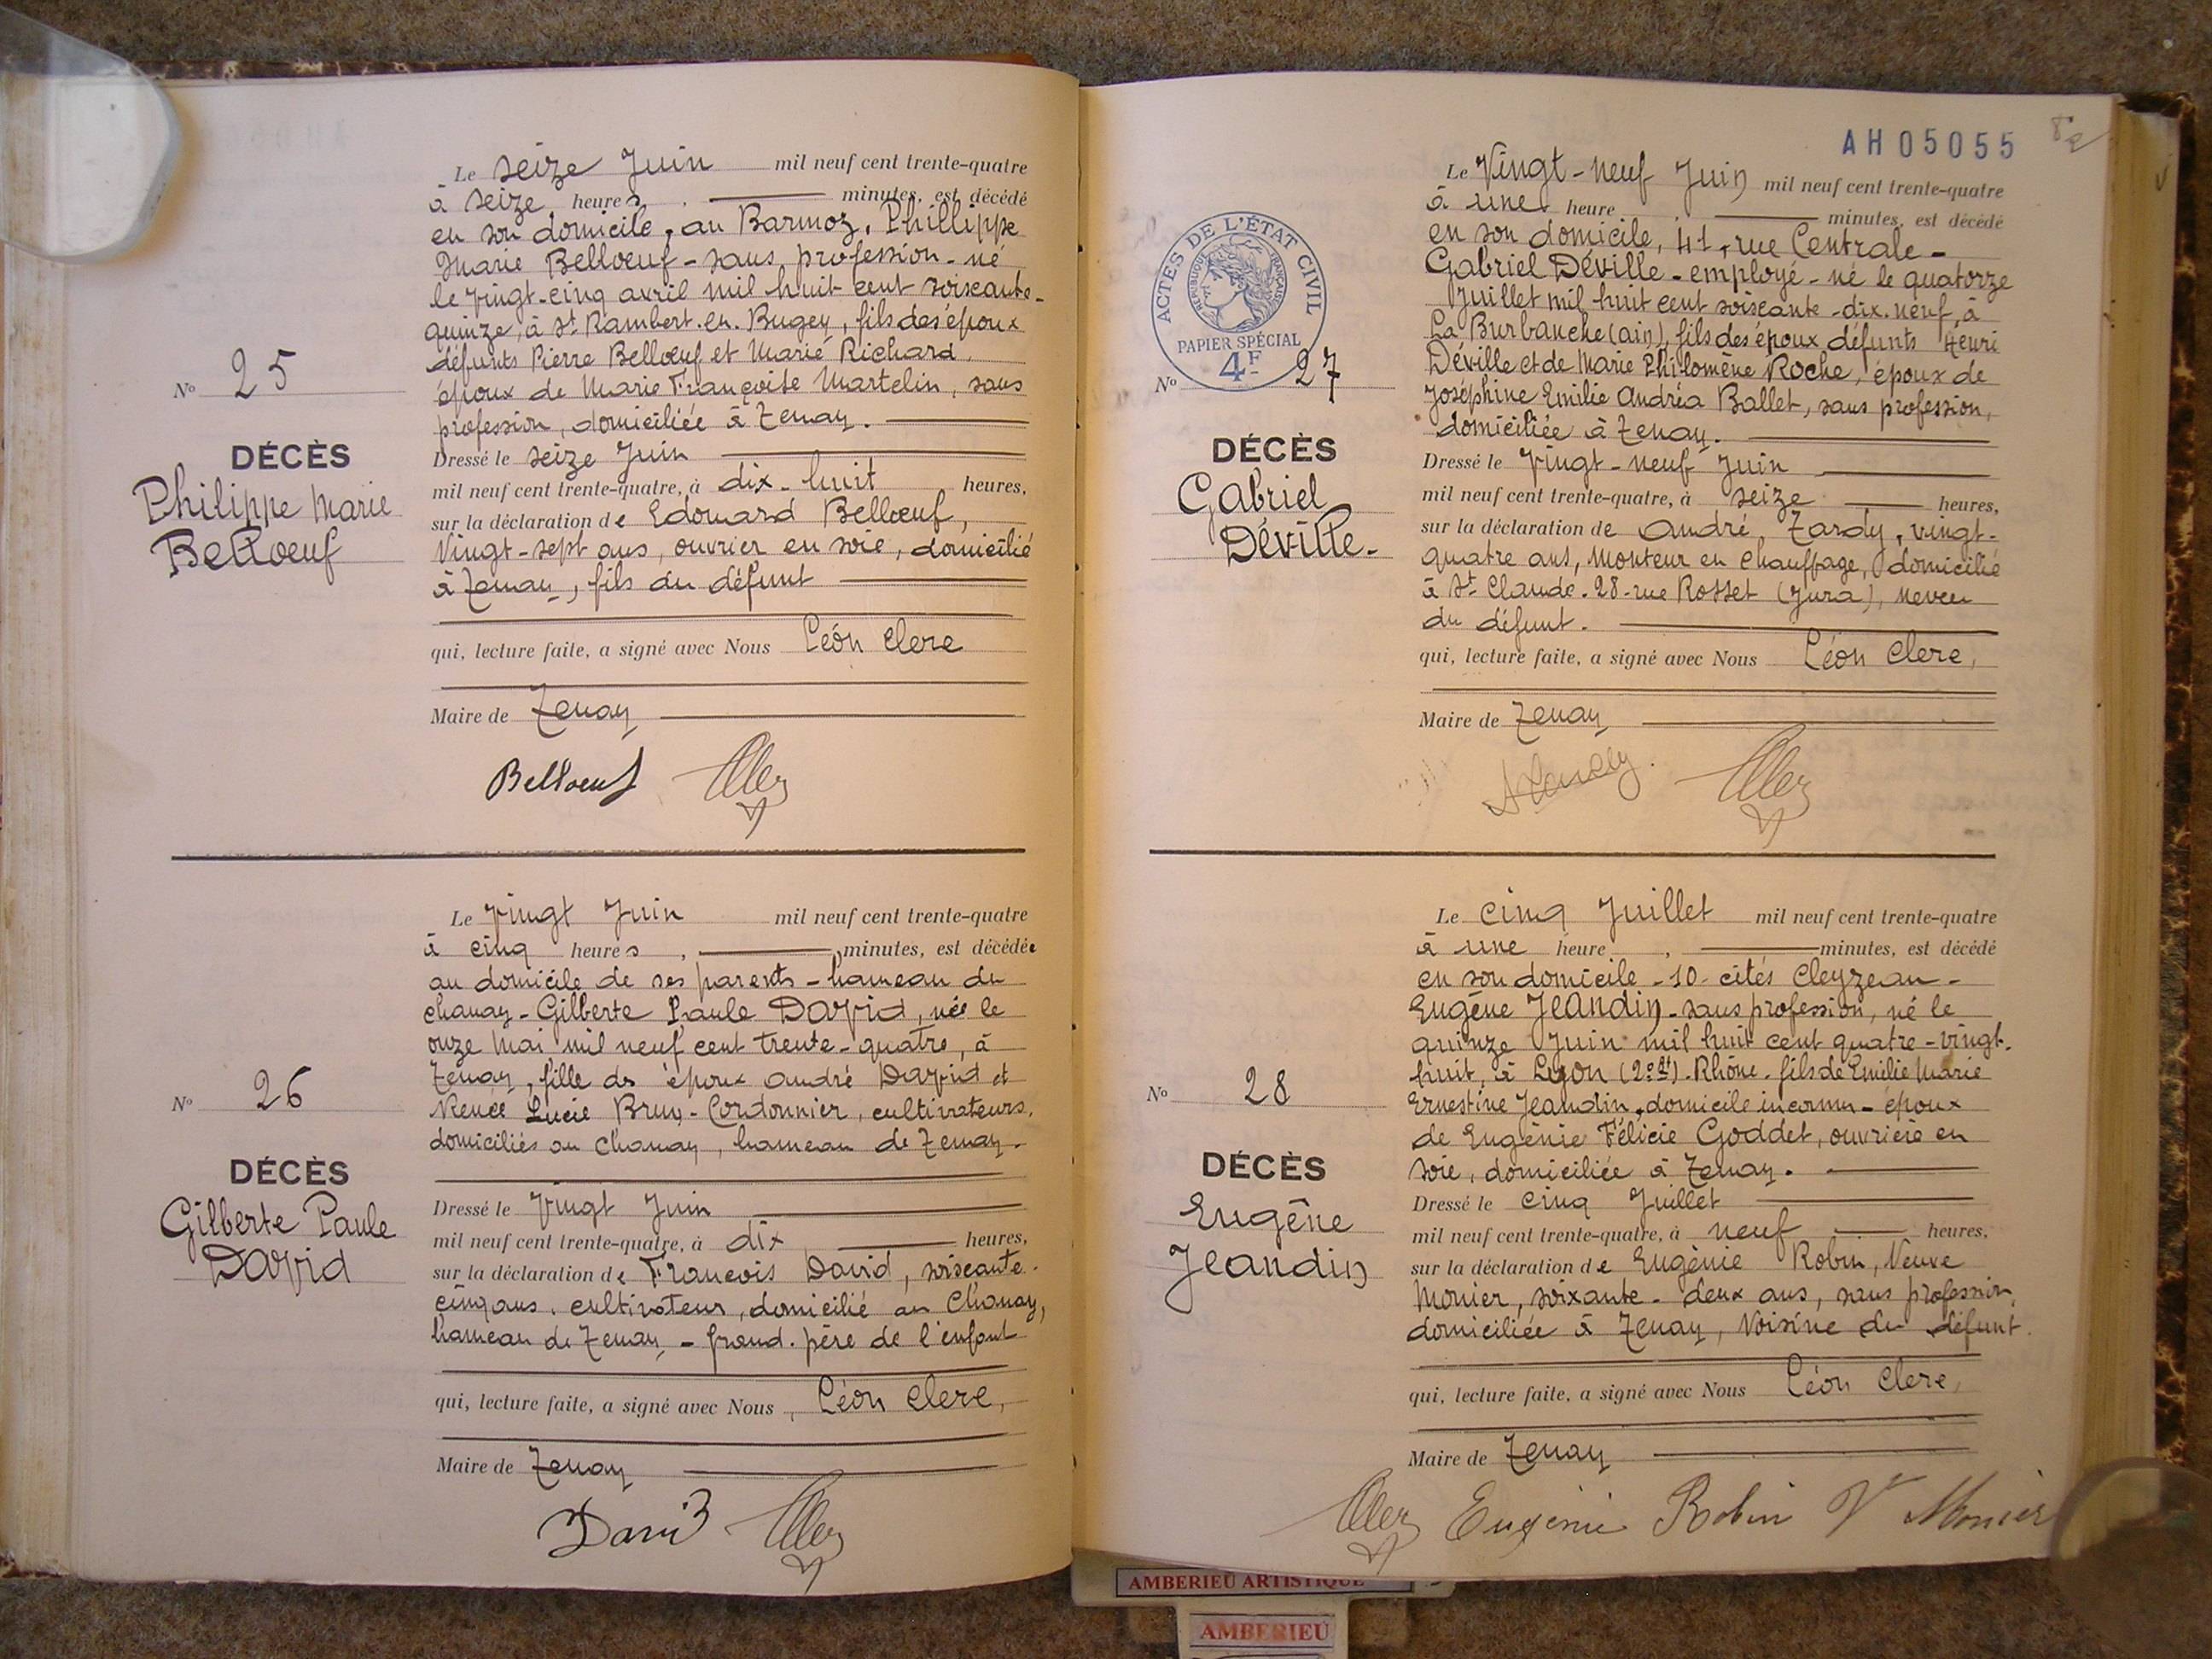 Le seize Juin mil neuf cent trente-quatre
à seize heures, minutes, est décédé
en son domicile, au Barmoz, Phillippe
Marie Bellœuf - sans profession - né
le vingt-cinq avril mil huit cent soixante-
quinze, à St Rambert-en-Bugey, fils des époux
défunts Pierre Bellœuf et Marie Richard.
époux de Marie Françoise Martelin, sans
profession, domiciliée à Tenay.
N° 25
DÉCÈS
Philippe Marie
Bellœuf
Dressé le seize Juin
mil neuf cent trente-quatre, à dix-huit heures,
sur la déclaration de Edouard Bellœuf,
Vingt-sept ans, ouvrier en soie, domicilié
à Tenay, fils du défunt
qui, lecture faite, a signé avec Nous Léon Clerc
Maire de Tenay
Bellœuf
Le vingt Juin mil neuf cent trente-quatre
à cinq heures, minutes, est décédée
au domicile de ses parents - hameau du
chanay - Gilberte Paule David, née le
onze Mai mil neuf cent trente-quatre, à
Tenay, fille des époux andré David et
Renée Lucie Brun-Cordonnier, cultivateurs,
domiciliés au Chanay, hameau de Tenay.
N° 26
DÉCÈS
Gilberte Paule
David
Dressé le Vingt Juin
mil neuf cent trente-quatre, à dix heures,
sur la déclaration de François David, soixante-
cinq ans, cultivateur, domicilié au Chanay,
hameau de Tenay, - grand-père de l'enfant
qui, lecture faite, a signé avec Nous, Léon Clerc,
Maire de Tenay
David
AH05055
ACTES DE L'ÉTAT CIVIL
RÉPUBLIQUE FRANÇAISE
PAPIER SPÉCIAL
4F
Le Vingt-neuf Juin mil neuf cent trente-quatre
à une heure, minutes, est décédé
en son domicile, 41, rue Centrale -
Gabriel Déville - employé - né le quatorze
Juillet mil huit cent soixante-dix-neuf, à
La Burbanche (ain), fils des époux défunts Henri
Déville et de Marie Philomène Roche, époux de
Joséphine Emilie Andréa Ballet, sans profession,
domiciliée à Tenay.
N° 27
DÉCÈS
Gabriel
Déville-
Dressé le vingt-neuf Juin
mil neuf cent trente-quatre, à seize heures,
sur la déclaration de André Tardy, vingt-
quatre ans, monteur en chauffage, domicilié
à St Claude - 28 - rue Rosset (Jura), neveu
du défunt.
qui, lecture faite, a signé avec Nous Léon Clerc,
Maire de Tenay
Le cinq Juillet mil neuf cent trente-quatre
à une heure, minutes, est décédé
en son domicile - 10 - cités Cleyzeau -
Eugène Jeandin - sans profession, né le
quinze Juin mil huit cent quatre-vingt-
huit, à Lyon (2e art) - Rhône - fils de Emilie Marie
Ernestine Jeandin, domicile inconnu - époux
de Eugénie Félicie Goddet, ouvrière en
soie, domiciliée à Tenay.
N° 28
DÉCÈS
Eugène
Jeandin
Dressé le cinq Juillet
mil neuf cent trente-quatre, à neuf heures,
sur la déclaration de Eugénie Robin, Veuve
Monier, soixante-deux ans, sans profession,
domiciliée à Tenay, voisine du défunt.
qui, lecture faite, a signé avec Nous Léon Clerc,
Maire de Tenay
Eugénie Robin Ve Monier
AMBERIEU ARTISTIQUE
AMBERIEU